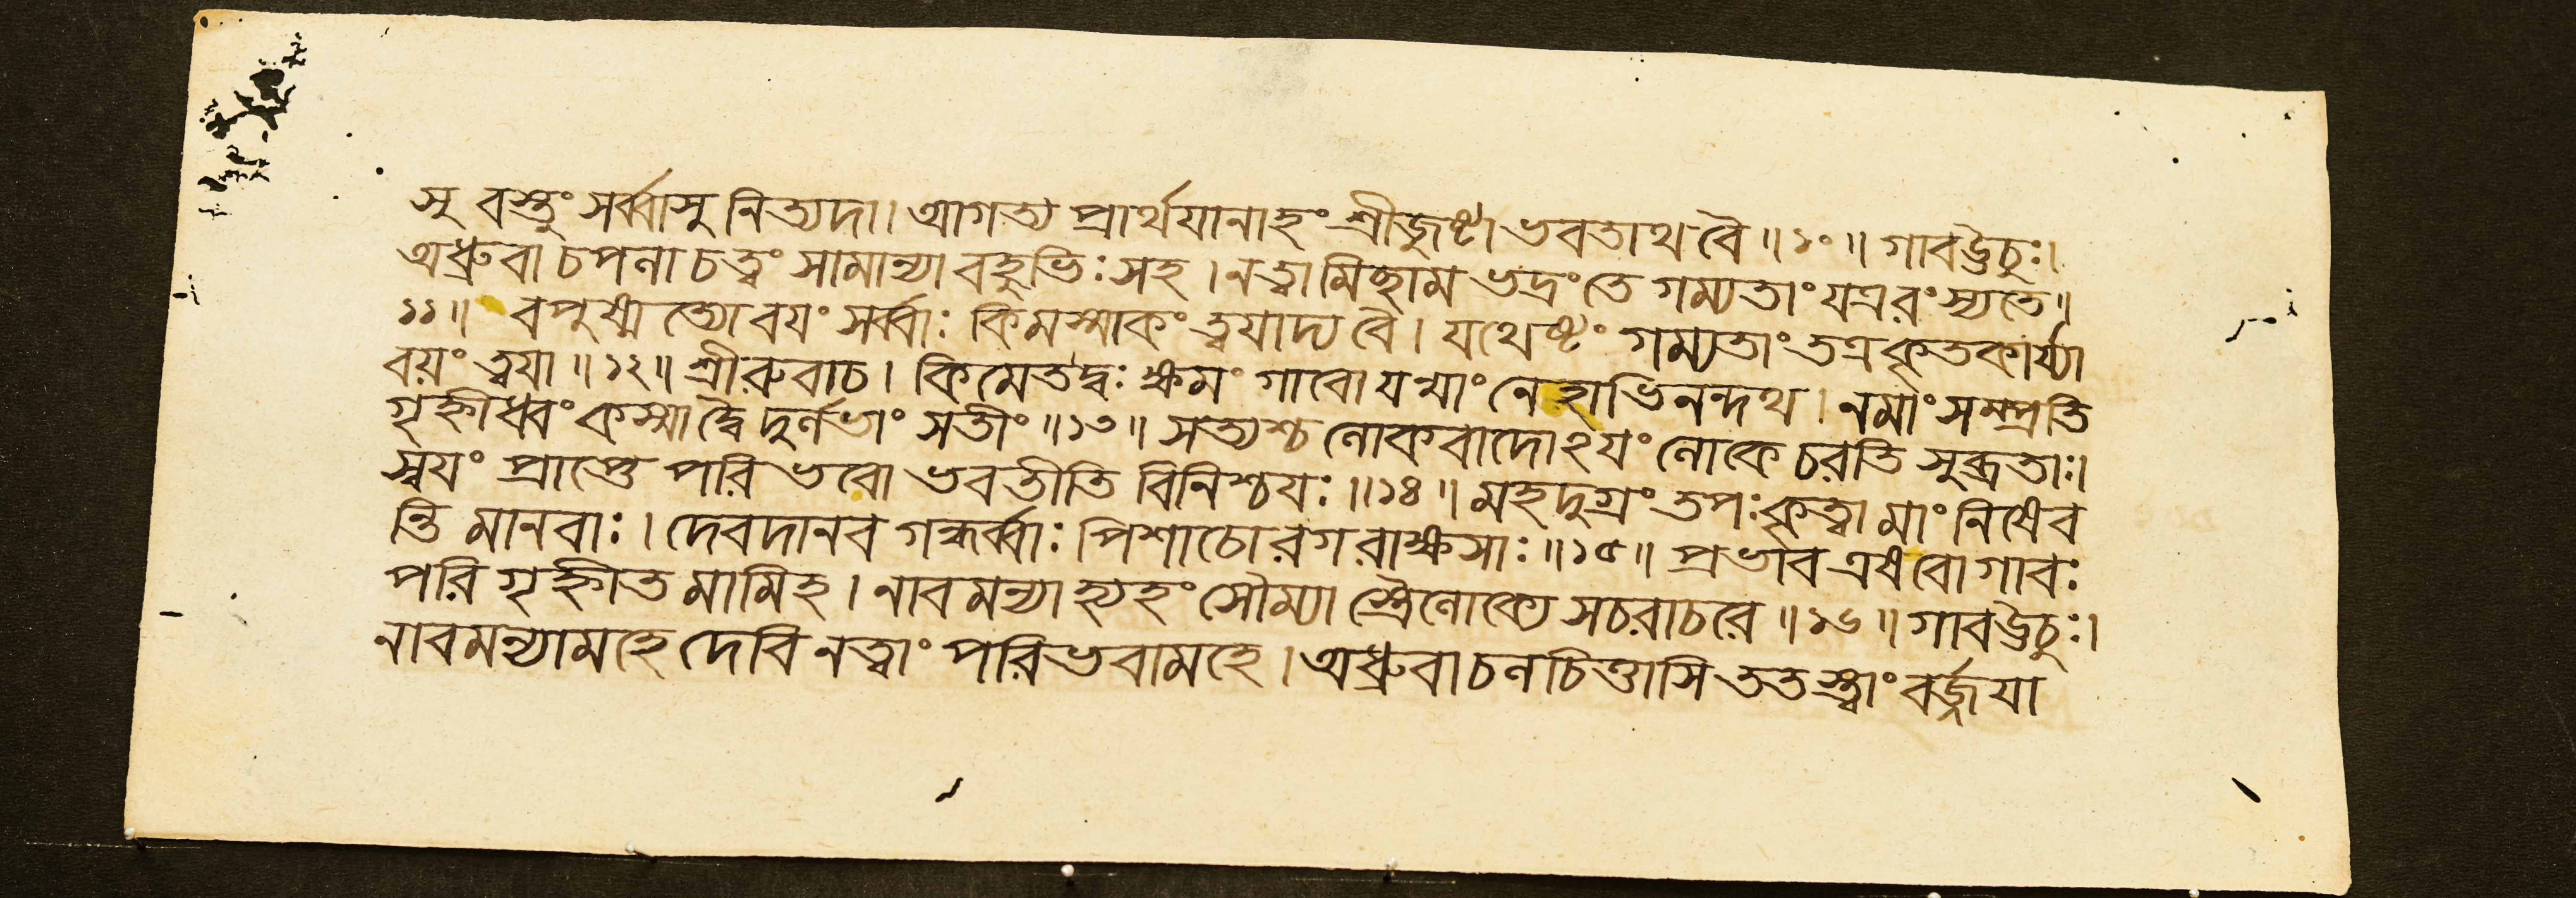 সু বস্তুং সর্ব্বাসু নিত্যদা। আগত্য প্রার্থযানাহং শ্রীজুষ্টা ভবতাথ বৈ ॥১০॥ গাবঊচুঃ।
অধ্রুবা চপলা চ ত্বং সামান্যা বহুভিঃ সহ। নত্বামিচ্ছাম ভদ্রংতে গম্যতাং যত্ররংস্যতে॥
১১॥ বপুষ্মত্যো বযং সর্ব্বাঃ কিমস্মাকং ত্বযাদ্য বৈ। যথেষ্টং গম্যতাং তত্রকৃতকার্য্যা
বয়ং ত্বযা ॥১২॥ শ্রীরুবাচ। কিমেতদ্বঃ ক্ষমং গাবো যন্মাং নেহাভিনন্দথ। নমাং সম্প্রতি
গৃহ্নীধ্বং কস্মাদ্বৈ দুর্লভাং সতীং ॥১৩॥ সত্যশ্চ লোকবাদোঽযং লোকে চরতি সুব্রতাঃ।
স্বযং প্রাপ্তে পরিভবো ভবতীতি বিনিশ্চযঃ ॥১৪॥ মহদুগ্রং তপঃকৃত্বা মাং নিষেব
ন্তি মানবাঃ। দেবদানব গন্ধর্ব্বাঃ পিশাচোরগরাক্ষসাঃ ॥১৫॥ প্রভাব এষ বো গাবঃ
পরি গৃহ্নীত মামিহ। নাবমন্যা হ্যহং সৌম্যা স্ত্রৈলোক্যে সচরাচরে ॥১৬॥ গাবঊচুঃ।
নাবমন্যামহে দেবি নত্বাং পরিভবামহে। অধ্রুবা চলচিত্তাসি ততস্ত্বাং বর্জ্জযা